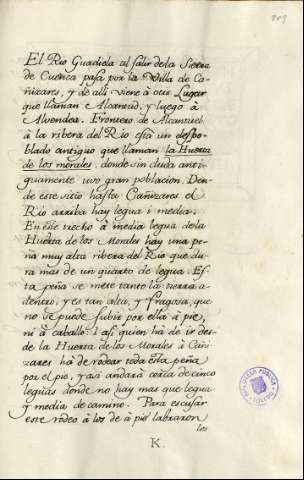 El Rio Guadiela al salir de la Sierra
de Cuenca pasa por la Villa de Ca-
ñizares, y de alli viene à otro Lugar
que llaman Alcantud, y luego à
Alvendea. Frontero de Alcantud
à la ribera del Rio està un despo-
blado antiguo que llaman la Huerta
de los morales, donde sin duda anti-
guamente uvo gran poblacion. Den-
de este sitio hasta Cañizares el
Rio arriba hay legua i media.
En este trecho à media legua de la
Huerta de los Morales hay una pe-
ña muy alta ribera del Rio que du-
ra mas de un quarto de legua. Es-
ta peña se mete tanto la tierra a-
dentro, y es tan alta, y fragosa, que
no se puede subir por ella à pie,
ni à caballo: i asi quien hà de ir des-
de la Huerta de los Morales à Cañi-
zares hà de rodear toda esta peña
por el pie, y asi andarà cerca de cinco
leguas donde no hay mas que legua
y media de camino. Para escusar
este rodeo à los de à pie labraron
los
K.